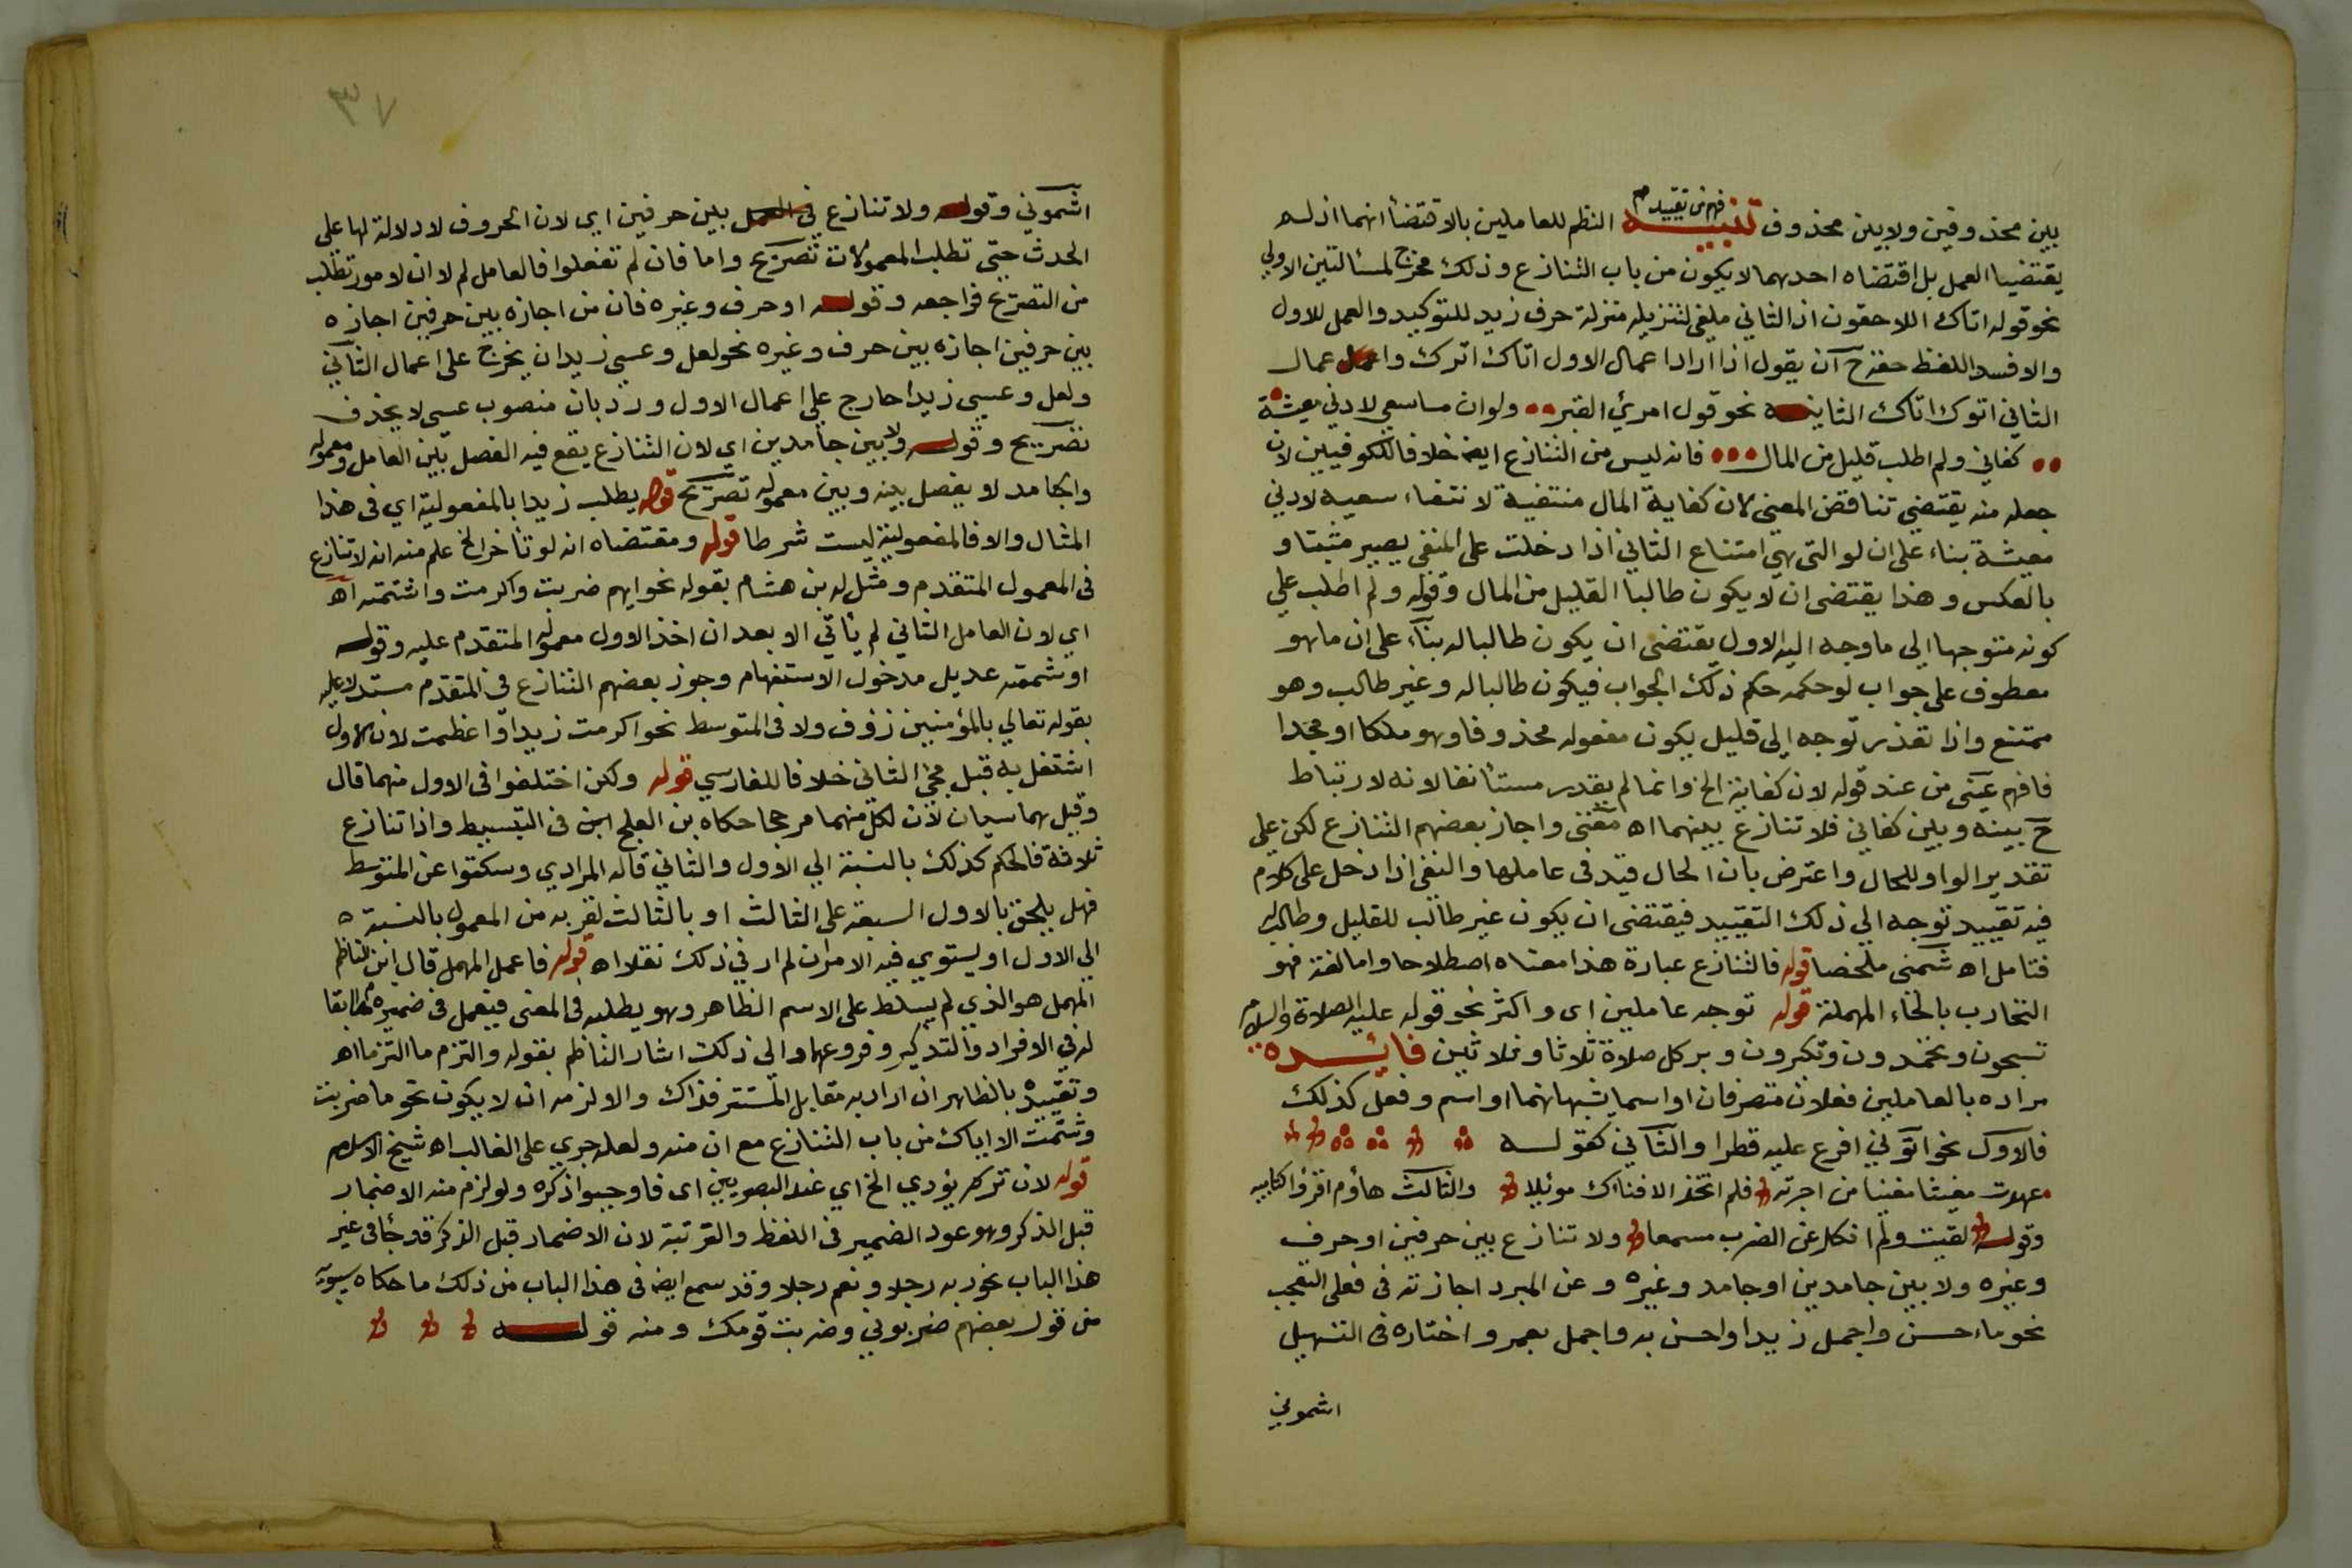 بين محذوفين ولا بين محذوف تنبيه فهم من تقييدم النظم للعاملين بالاقتضا انهما اذ لم
يقتضيا العمل بل اقتضاه احدهما لا يكون من باب التنازع وذلك مخرج لمسالتين الاولي
نحو قوله اتاك اللاحقون اذ الثاني ملغى لتنزيله منزلة حرف زيد للتوكيد والعمل للاول
والا فسد اللفظ حقه ح ان يقول اذا اراد اعمال الاول اتاك اتوك واعمال
الثاني اتوك اتاك الثانيه نحو قول امرئ القيس ولو ان ما سعي لادني معيشة
كفاني ولم اطلب قليل من المال فانه ليس من التنازع ايضا خلافا للكوفيين لان
جعله منه يقتضي تناقض المعنى لان كفاية المال منتفية لانتفاء سعيه لادني
معيشة بناء على ان لو التي هي امتناع الثاني اذا دخلت على المنفي يصير مثبتا و
بالعكس وهذا يقتضى ان لا يكون طالبا القليل من المال وقوله ولم اطلب علي
كونه متوجها الى ما وجه اليه الاول يقتضى ان يكون طالبا له بنآء على ان ما هو
معطوف على جواب لو حكمه حكم ذلك الجواب فيكون طالبا له وغير طالب وهو
ممتنع واذا تعذر توجه الى قليل يكون مفعوله محذوفا وهو ملكا او مجدا
فافهم عينى من عند قوله لان كفاية الخ وانما لم يقدر مستأنفا لانه لا ارتباط
ح بينه وبين كفاني فلا تنازع بينهما اه مغنى واجاز بعضهم التنازع لكن علي
تقدير الواو للحال واعترض بان الحال قيد في عاملها والنفى اذا دخل على كلام
فيه تقييد توجه الي ذلك التقييد فيقتضى ان يكون غير طالب للقليل وطالبه
فتامل اه شمنى ملخصا قوله فالتنازع عبارة هذا معناه اصطلاحا واما لغة فهو
التخارب بالخاء المهملة قوله توجه عاملين اى واكثر نحو قوله عليه الصلاة والسلام
تسبحون وتحمدون وتكبرون وبر كل صلاة ثلاثا وثلاثين فائده
مراده بالعاملين فعلان متصرفان او اسما يشبهانهما او اسم وفعل كذلك
فالاول نحو اتوني افرغ عليه قطرا والثاني كقوله
عهدت مغيثا مغنيا من اجرته فلم اتخذ الا فناك موئلا والثالث هاؤم اقرؤا كتابيه
وقوله لقيت ولم انكل عن الضرب مسمعا ولا تنازع بين حرفين او حرف
وغيره ولا بين جامدين او جامد وغيره وعن المبرد اجازته في فعلى التعجب
نحو ما احسن واجمل زيدا واحسن به واجمل بعمرو اختاره في التسهيل
اشموني
٣٧
اشموني وقوله ولا تنازع في العمل بين حرفين اي لان الحروف لا دلالة لها على
الحدث حتى تطلب المعمولات تصريح واما فان لم تفعلوا فالعامل لم لا ان لامور تطلب
من التصريح فراجعه وقوله او حرف وغيره فان من اجازه بين حرفين اجازه
بين حرفين اجازه بين حرف وغيره نحو لعل وعسي زيد ان يخرج على اعمال الثاني
ولعل وعسى زيدا خارج علي اعمال الاول ورد بان منصوب عسى لا يحذف
تصريح وقوله ولا بين جامدين اي لان التنازع يقع فيه الفصل بين العامل ومعموله
والجامد لا يفصل بينه وبين معموله تصريح قوله يطلب زيدا بالمفعولية اي في هذا
المثال والا فالمفعولية ليست شرطا قوله ومقتضاه انه لو تاخر الخ علم منه انه لا تنازع
في المعمول المتقدم ومثل له بن هشام بقوله نحو ايهم ضربت واكرمت واشتمته اه
اي لان العامل الثاني لم ياتي الا بعد ان اخذ الاول معموله المتقدم عليه وقوله
او شتمته عديل مدخول الاستفهام وجوز بعضهم التنازع في المتقدم مستدلا عليه
بقوله تعالي بالمؤمنين رؤف ولا في المتوسط نحو اكرمت زيدا واعظمت لان الاول
اشتغل به قبل مجئ الثانى خلافا للفارسي قوله ولكن اختلفوا في الاول منهما قال
وقيل هما سيان لان لكل منهما مرجحا حكاه بن العلج في البسيط واذا تنازع
ثلاثة فالحكم كذلك بالنسبة الي الاول والثاني قاله المرادي وسكتوا عن المتوسط
فهل يلحق بالاول السبقه على الثالث او بالثالث لقربه من المعمول بالنسبة
الى الاول او يستوي فيه الامران لم ار في ذلك نقلا اه قوله فاعمل المهمل قال ابن الناظم
المهمل هو الذي لم يسلط على الاسم الظاهر وهو يطلبه في المعنى فيعمل في ضميره مطابقا
له في الافراد والتذكير وفروعهما والى ذلك اشار الناظم بقوله والتزم ما التزما اه
وتقييده بالظاهر ان اراد به مقابل المستتر فذاك والا لزمه ان لا يكون نحو ما ضربت
وشتمت الا اياك من باب التنازع مع ان منه ولعله جري على الغالب اه شيخ الاسلام
قوله لان تركه يؤدي الخ اي عند البصريين اى فاوجبوا ذكره ولو لزم منه الاضمار
قبل الذكر وهو عود الضمير في اللفظ والمرتبة لان الاضمار قبل الذكر قد جا في غير
هذا الباب نحو ربه رجلا ونعم رجلا وقد سمع ايضا في هذا الباب من ذلك ما حكاه سيبويه
من قول بعضهم ضربوني وضربت قومك ومنه قوله